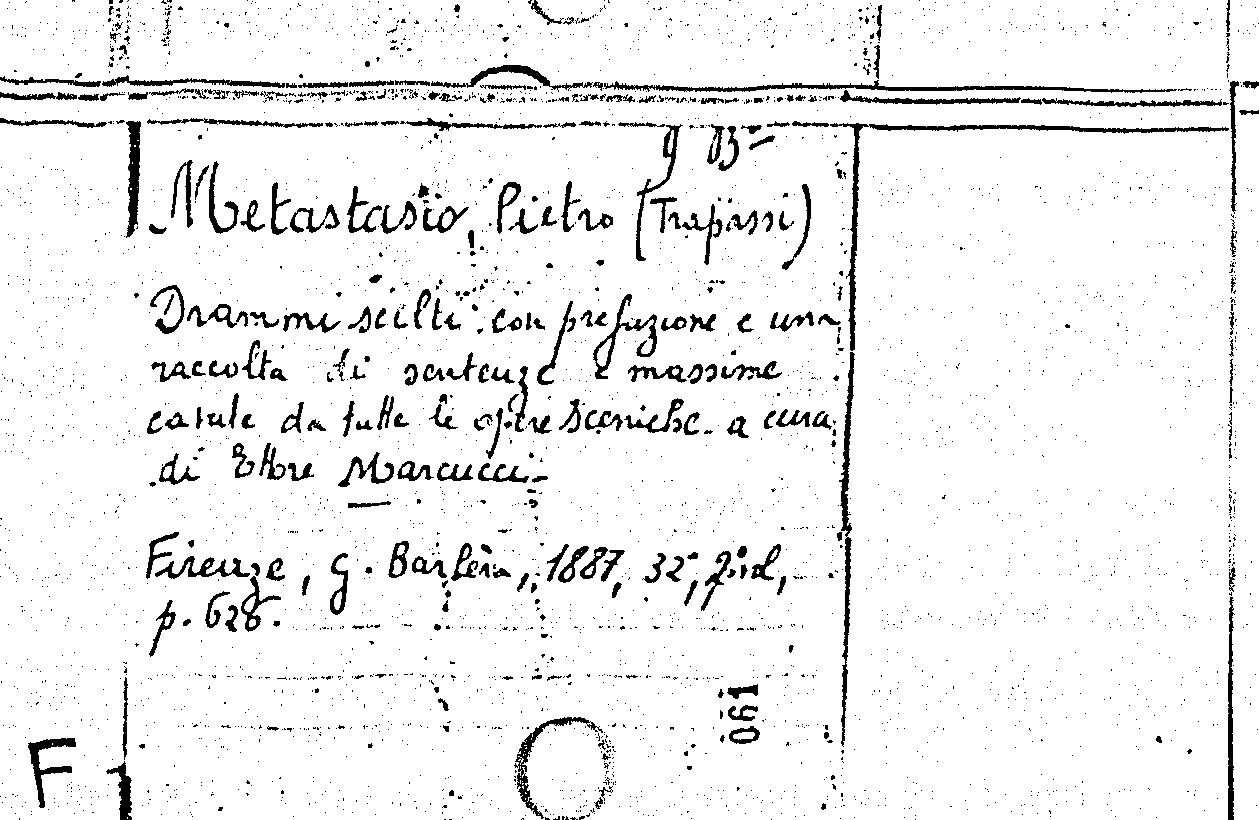 g B3=
Metastasio, Pietro (Trapassi)
Drammi scelti con prefazione e una
raccolta di sentenze e massime
cavate da tutte le opere sceniche. a cura
di Ettore Marcucci.-
Firenze, G. Barbèra, 1887, 32°,
p. 628.
061
F